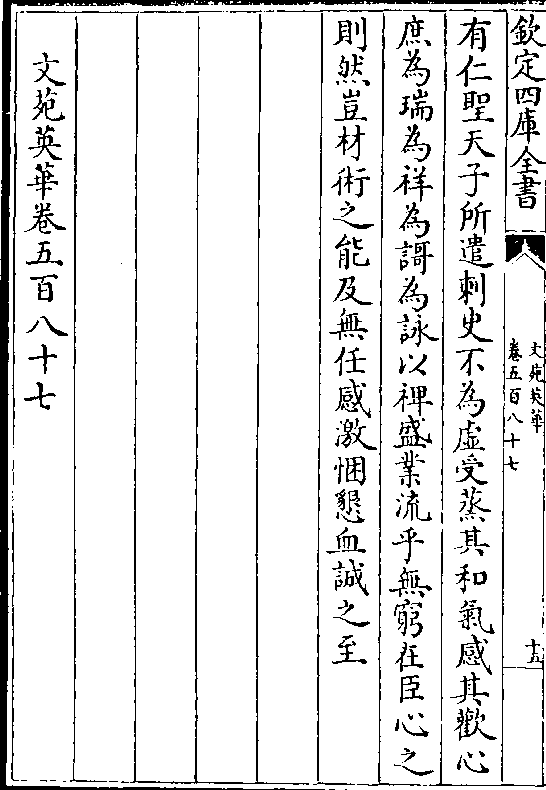 欽定四庫全書
文苑英華
卷五百八十七
十五
有仁聖天子所遣刺史不為虛受蒸其和氣感其歡心
庶為瑞為祥為謌為詠以裨盛業流乎無窮在臣心之
則然豈材術之能及無任感激悃懇血誠之至
文苑英華卷五百八十七